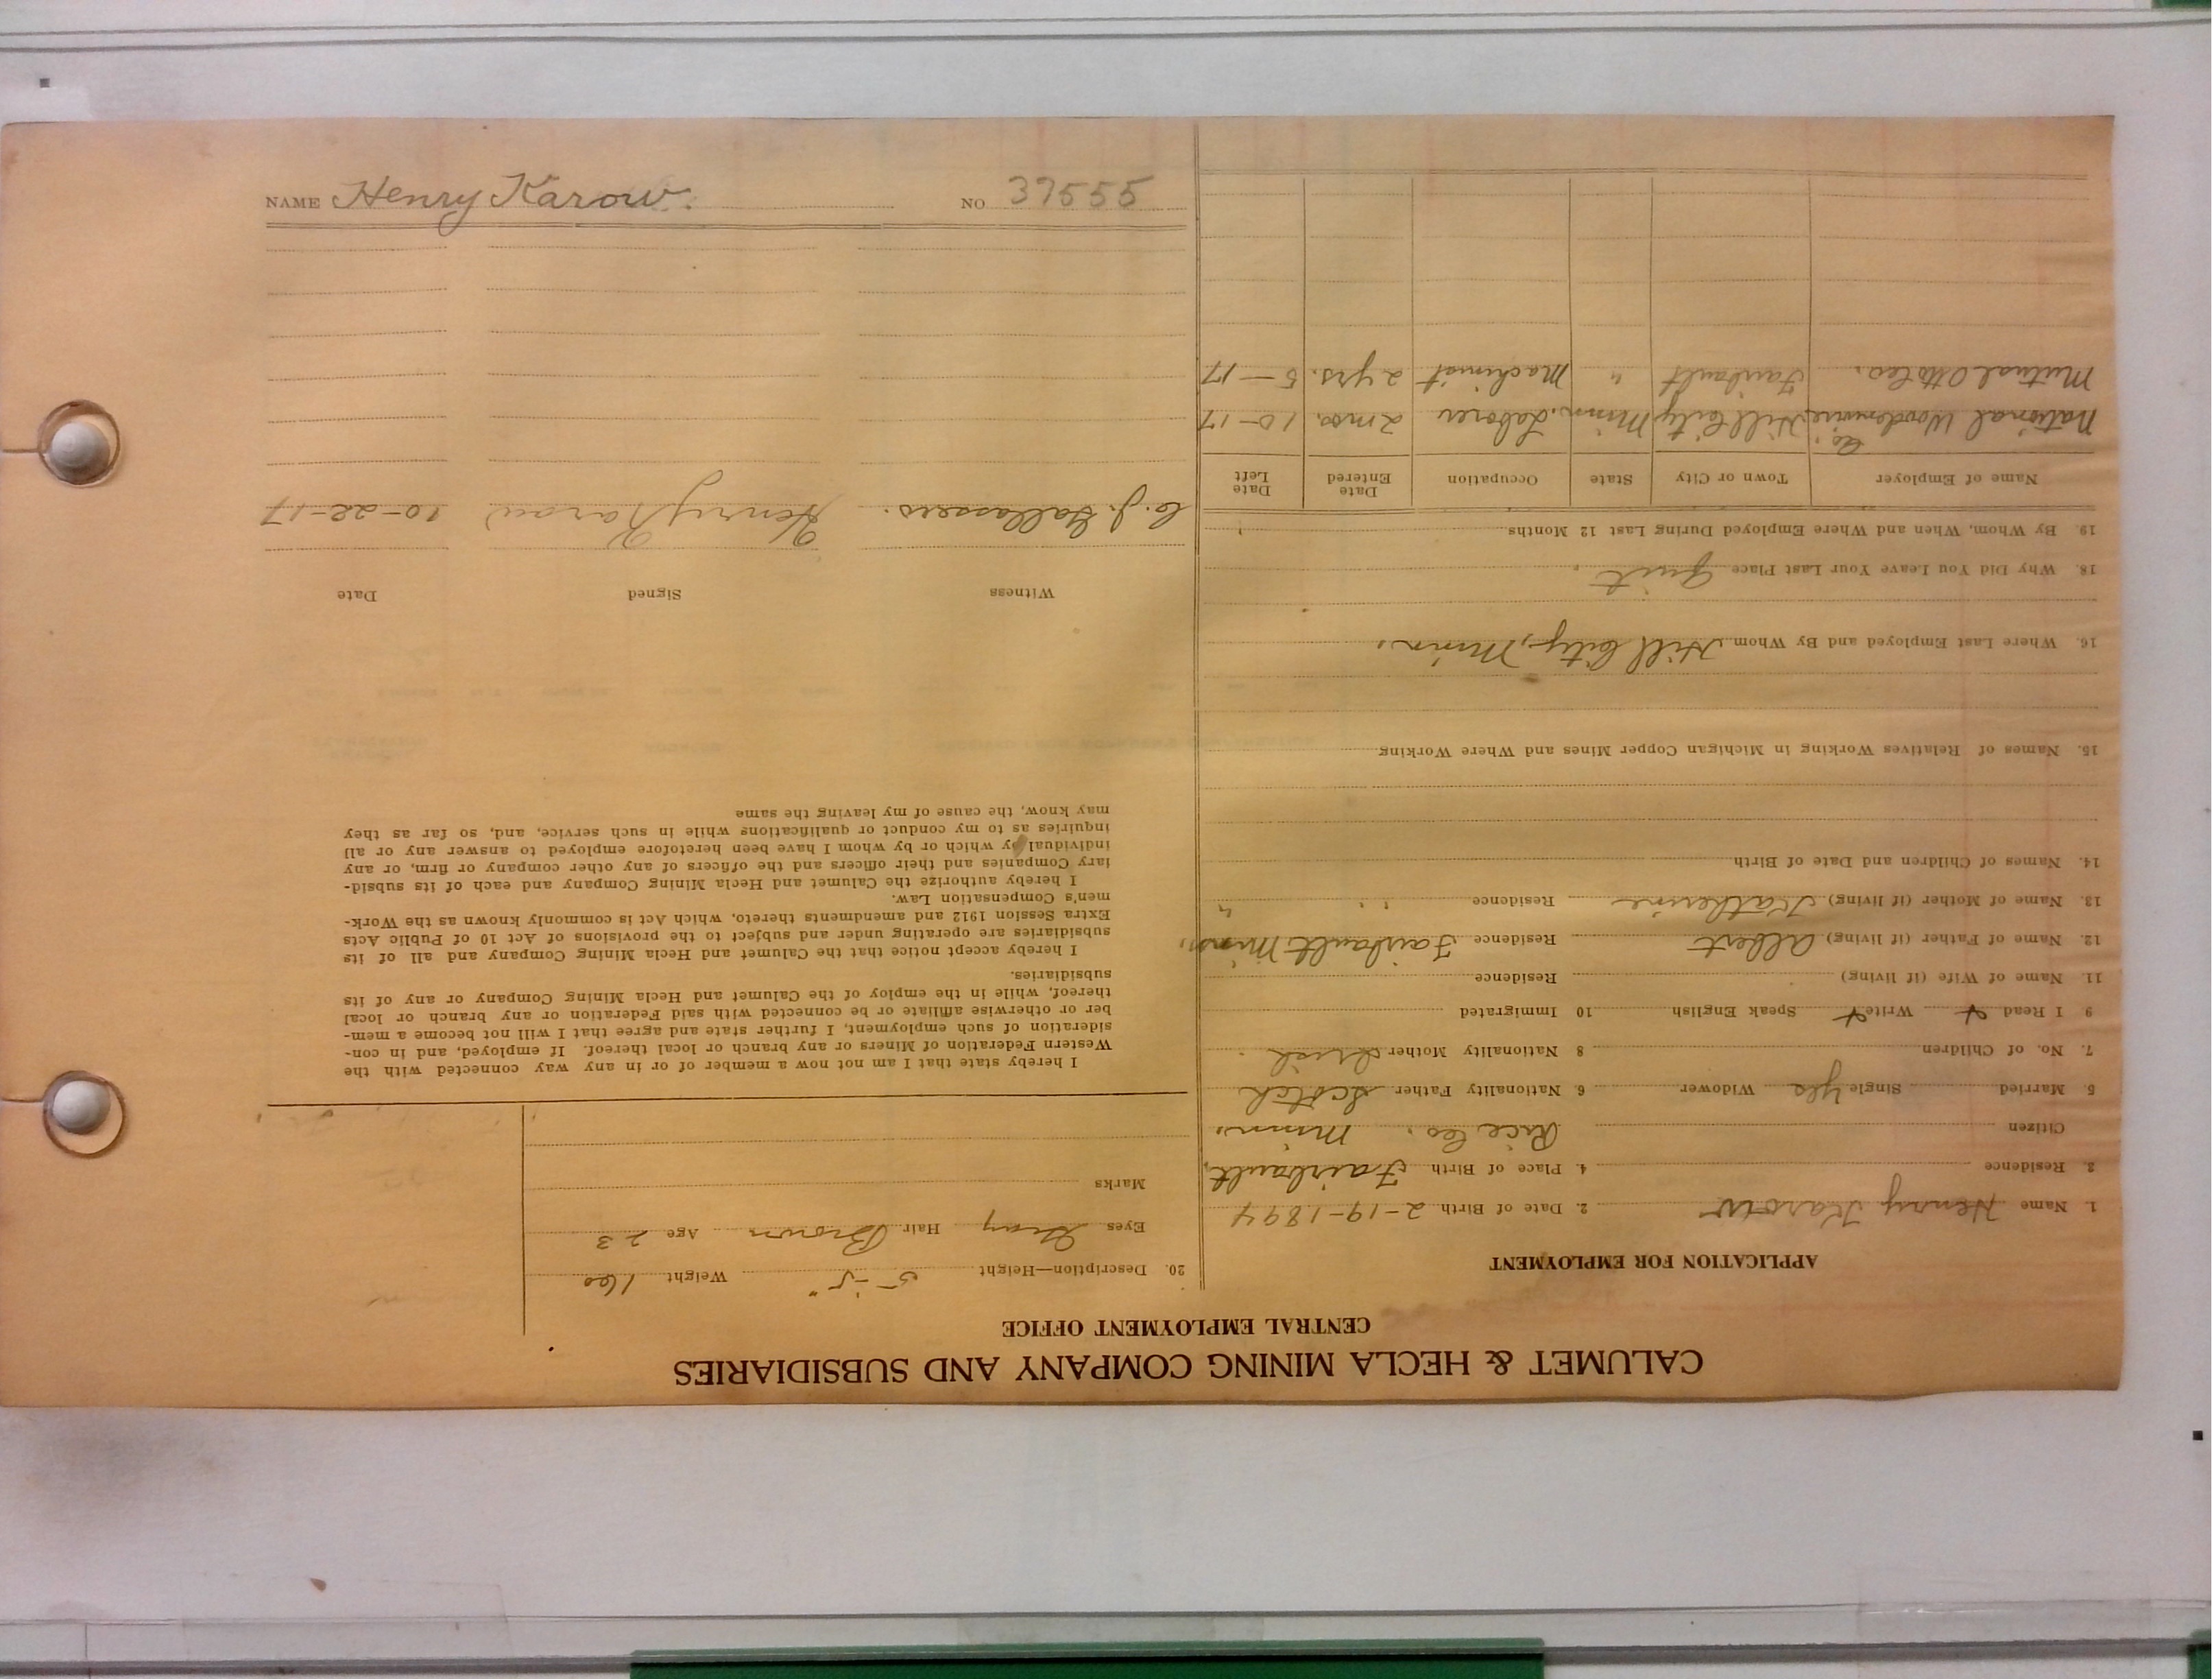 CALUMET & HECLA MINING COMPANY AND SUBSIDIARIES
CENTRAL EMPLOYMENT OFFICE
APPLICATION FOR EMPLOYMENT
1. Name Henry Karow 2. Date of Birth 2-19-1894
3. Residence 4. Place of Birth Fairbault,
Citizen Rice Co. Minn.
5. Married Single yes Widower 6. Nationality Father Scotch
7. No. of Children 8 Nationality Mother Irish.
9 I Read Write Speak English 10 Immigrated
11. Name of Wife (if living) Residence
12. Name of Father (if living) Albert Residence Fairbault Minn.
13. Name of Mother (if living) Katherine Residence " "
14. Names of Children and Date of Birth
15. Names of Relatives Working in Michigan Copper Mines and Where Working
16. Where Last Employed and By Whom Hill City, Minn.
18. Why Did You Leave Your Last Place Quit.
19. By Whom, When and Where Employed During Last 12 Months
Name of Employer Town or City State Occupation Date Entered Date Left
National Woodenware Co. Hill City Minn. Laborer 2 mos. 10-17
Mutual Fairbault " Machinist 2 yrs. 5-17
20. Description—Height 5'-5" Weight 160
Eyes Gray Hair Brown Age 23
Marks
I hereby state that I am not now a member of or in any way connected with the
Western Federation of Miners or any branch or local thereof. If employed, and in con-
sideration of such employment, I further state and agree that I will not become a mem-
ber or otherwise affiliate or be connected with said Federation or any branch or local
thereof, while in the employ of the Calumet and Hecla Mining Company or any of its
subsidiaries.
I hereby accept notice that the Calumet and Hecla Mining Company and all of its
subsidiaries are operating under and subject to the provisions of Act 10 of Public Acts
Extra Session 1912 and amendments thereto, which Act is commonly known as the Work-
men's Compensation Law.
I hereby authorize the Calumet and Hecla Mining Company and each of its subsid-
iary Companies and their officers and the officers of any other company or firm, or any
individual by which or by whom I have been heretofore employed to answer any or all
inquiries as to my conduct or qualifications while in such service, and, so far as they
may know, the cause of my leaving the same
Witness Signed Date
C. J. Henry Karow 10-22-17
NAME Henry Karow. NO 37555